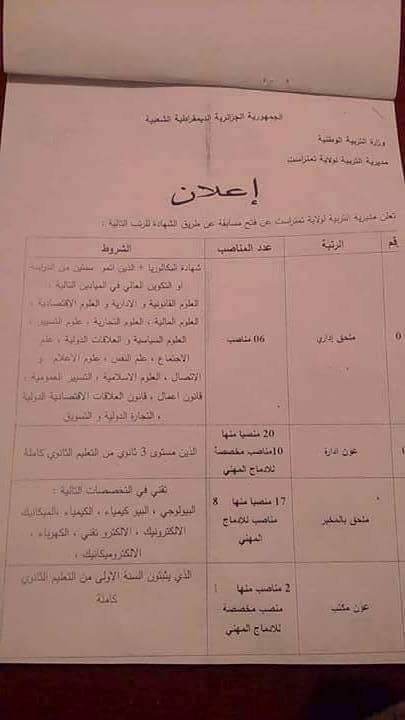 الجمهورية الجزائرية الديمقراطية الشعبية
وزارة التربية الوطنية
مديرية التربية لولاية تمنراست
إعلان
تعلن مديرية التربية لولاية تمنراست عن فتح مسابقة عن طريق الشهادة للرتب التالية :
رقم الرتبة عدد المناصب الشروط
0 ملحق إداري 06 مناصب
شهادة البكالوريا + الذين اتمو سنتين من الدراسة
او التكوين العالي في الميادين التالية :
العلوم القانونية و الادارية و العلوم الاقتصادية ،
العلوم المالية ، العلوم التجارية ، علوم التسيير ،
العلوم السياسية و العلاقات الدولية ، علم
الاجتماع ، علم النفس ، علوم الاعلام و
الاتصال ، العلوم الاسلامية ، التسيير العمومية ،
قانون اعمال ، قانون العلاقات الاقتصادية الدولية
، التجارة الدولية و التسويق
عون ادارة
20 منصبا منها
10مناصب مخصصة
للادماج المهني
الذين مستوى 3 ثانوي من التعليم الثانوي كاملة
ملحق بالمخبر
17 منصبا منها 8
مناصب للادماج
المهني
تقني في التخصصات التالية :
البيولوجي ، البيو كيمياء ، الكيمياء ،الميكانيك
الالكترونيك ، الالكترو تقني ، الكهرباء ،
الالكتروميكانيك ،
عون مكتب
2 مناصب منها 1
منصب مخصصة
للادماج المهني
الذي يثبتون السنة الاولى من التعليم الثانوي
كاملة